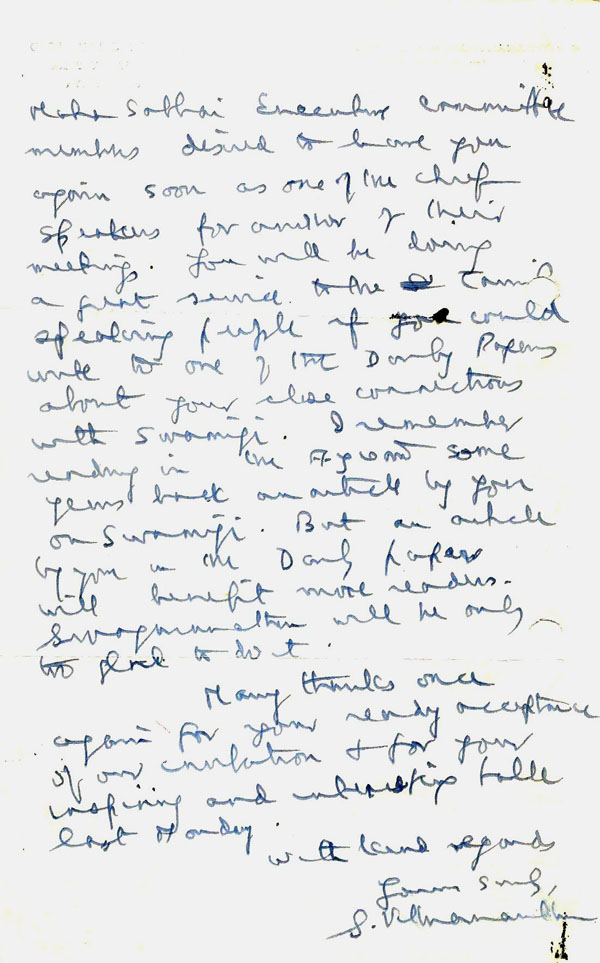 Maha Sabhai Executive Committee
members desired to have you
again soon as one of the chief
speakers for another of their
meetings. You will be doing
a great service to the Tamil
speaking people if you could
write to one of the Daily Papers
about your close connections
with Swamiji. I remember
reading in the some
years back an article by you
on Swamiji. But an article
by you in the Daily papers
will benefit more readers.
will be only
too glad to do it.
Many thanks once
again for your ready acceptance
of our invitation & for your
inspiring and interesting talk
last Monday.
With kind regards
Yours
S.